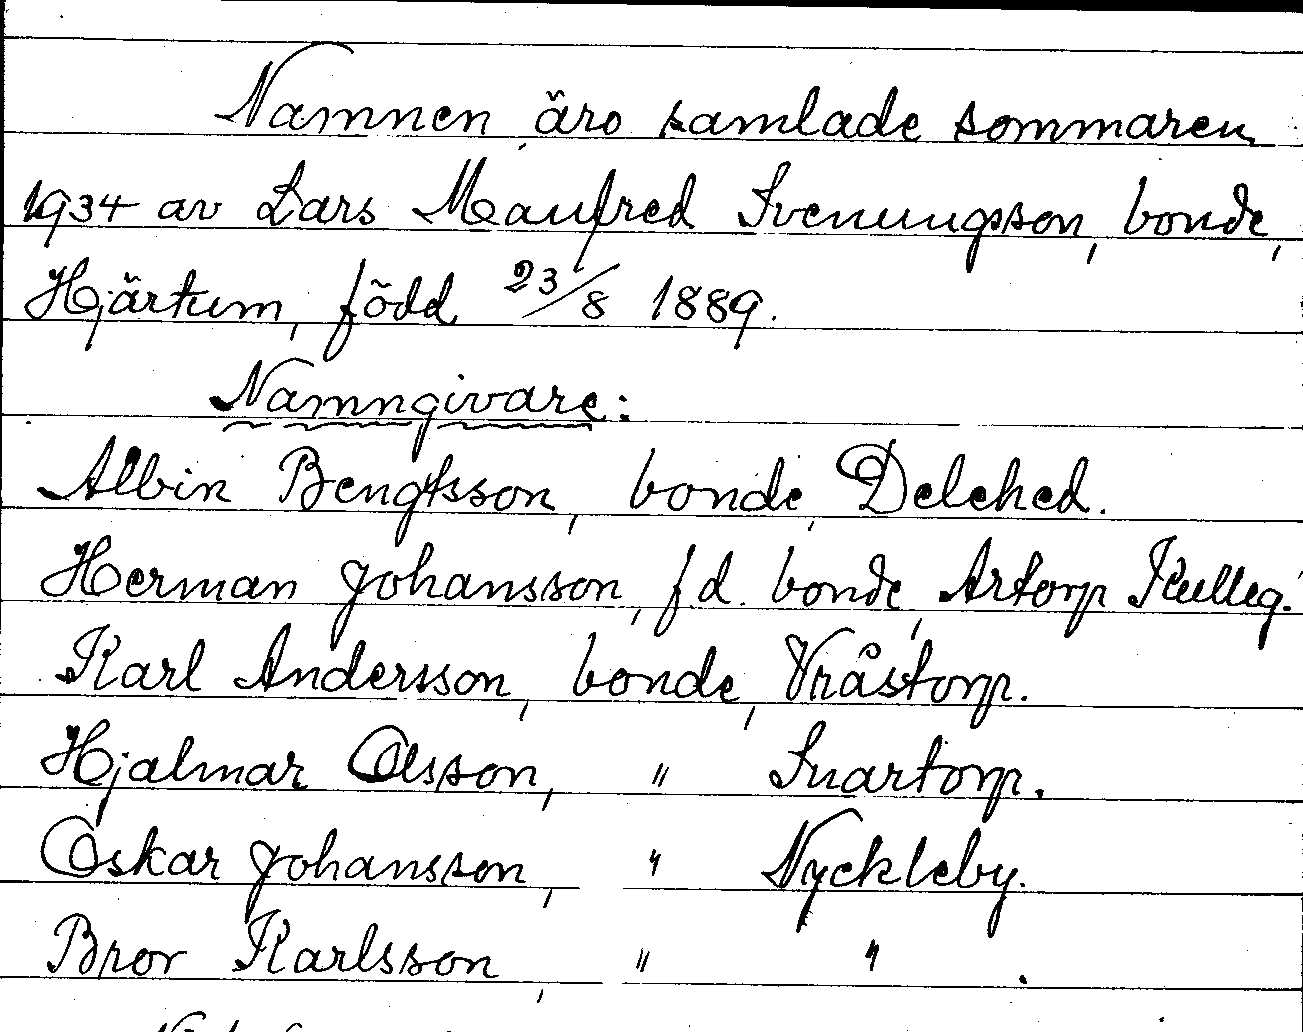 Namnen äro samlade sommaren
1934 av Lars Manfred Svenungsson, bonde,
Hjärtum, född 23/8 1889.
Namngivare:
Albin Bengtsson, bonde, Delehed.
Herman Johansson, f.d. bonde, Artorp Kulleg.
Karl Andersson, bonde, Vråstorp.
Hjalmar Olsson, " Snartorp.
Oskar Johansson, " Nyckleby.
Bror Karlsson, " " .